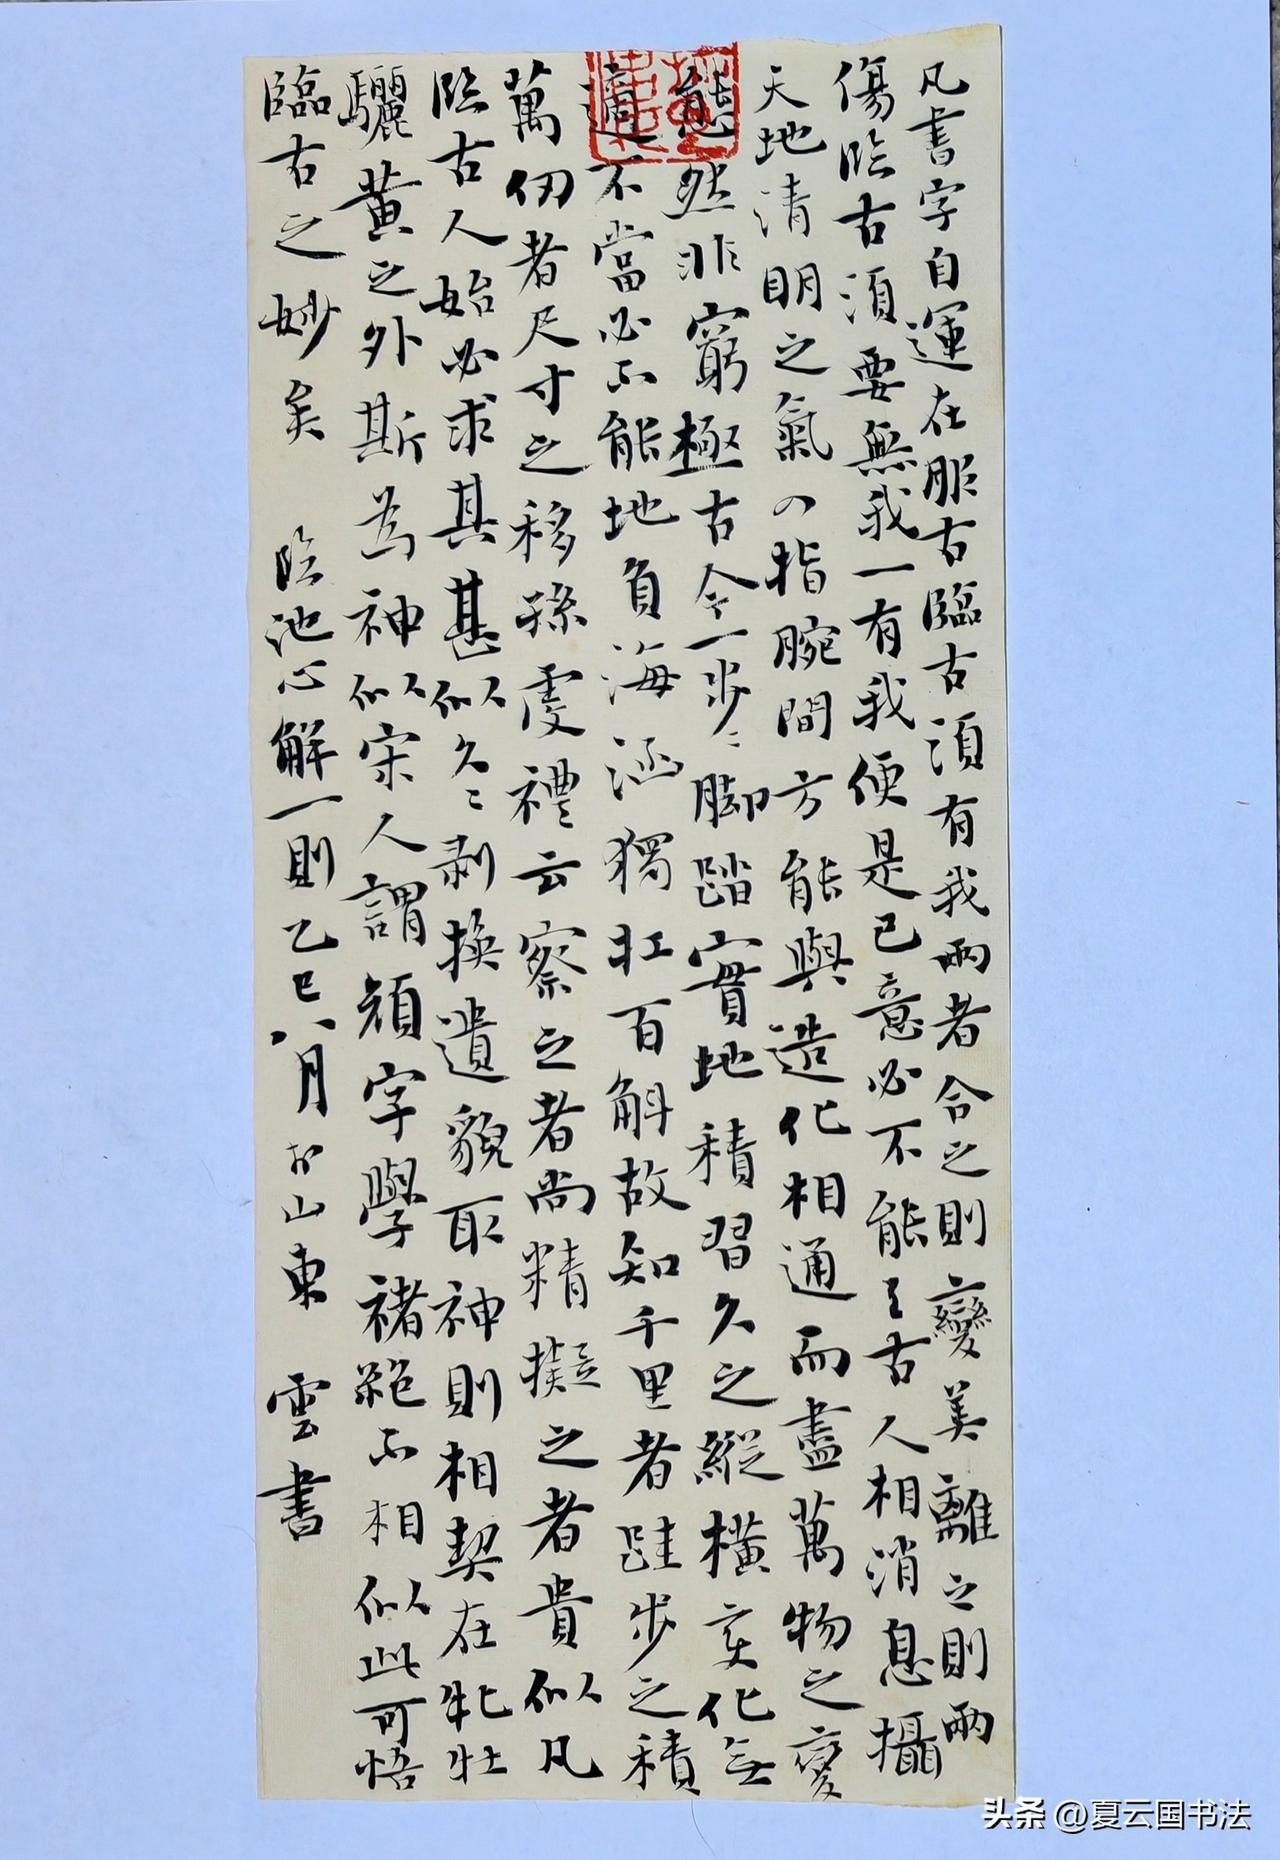 凡書字自運在服古臨古須有我兩者合之則變美離之則兩
傷臨古須要無我一有我便是己意必不能与古人相消息攝
天地清明之氣入指腕間方能與造化相通而盡萬物之變
態然非窮極古今一步々脚踏實地積習久之縱橫变化無
適不當必不能地負海涵獨扛百斛故知千里者跬步之積
萬仞者尺寸之移孫虔禮云察之者尚精擬之者貴似凡
臨古人始必求其甚似久々剥換遺貌取神則相契在牝牡
驪黃之外斯為神似宋人謂顏字學褚絕不相似此可悟
臨古之妙矣 臨池心解一則乙巳八月於山東 雲書
头条 @夏云国书法